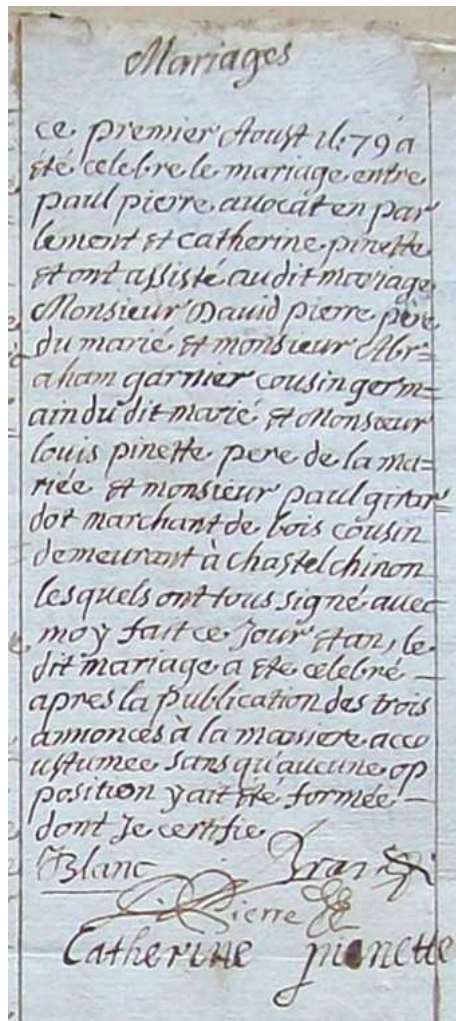 Mariages
ce premier Aoust 1679 a
été celebre le mariage entre
paul pierre avocat en par
lement et catherine pinette
et ont assisté audit mariage
Monsieur David pierre père
du marié et monsieur Abr=
aham garnier cousin germ=
ain du dit marié et Monsieur
louis pinette pere de la ma=
riée et monsieur paul girar=
dot marchant de bois cousin
demeurant à chastelchinon
lesquels ont tous signé avec
moy fait ce Jour et an, le
dit mariage a été celebré
apres la publication des trois
annonces à la maniere acco
ustumee sans qu'aucune op
position y ait été formée
dont Je certifie
Pierre
Catherine pinette